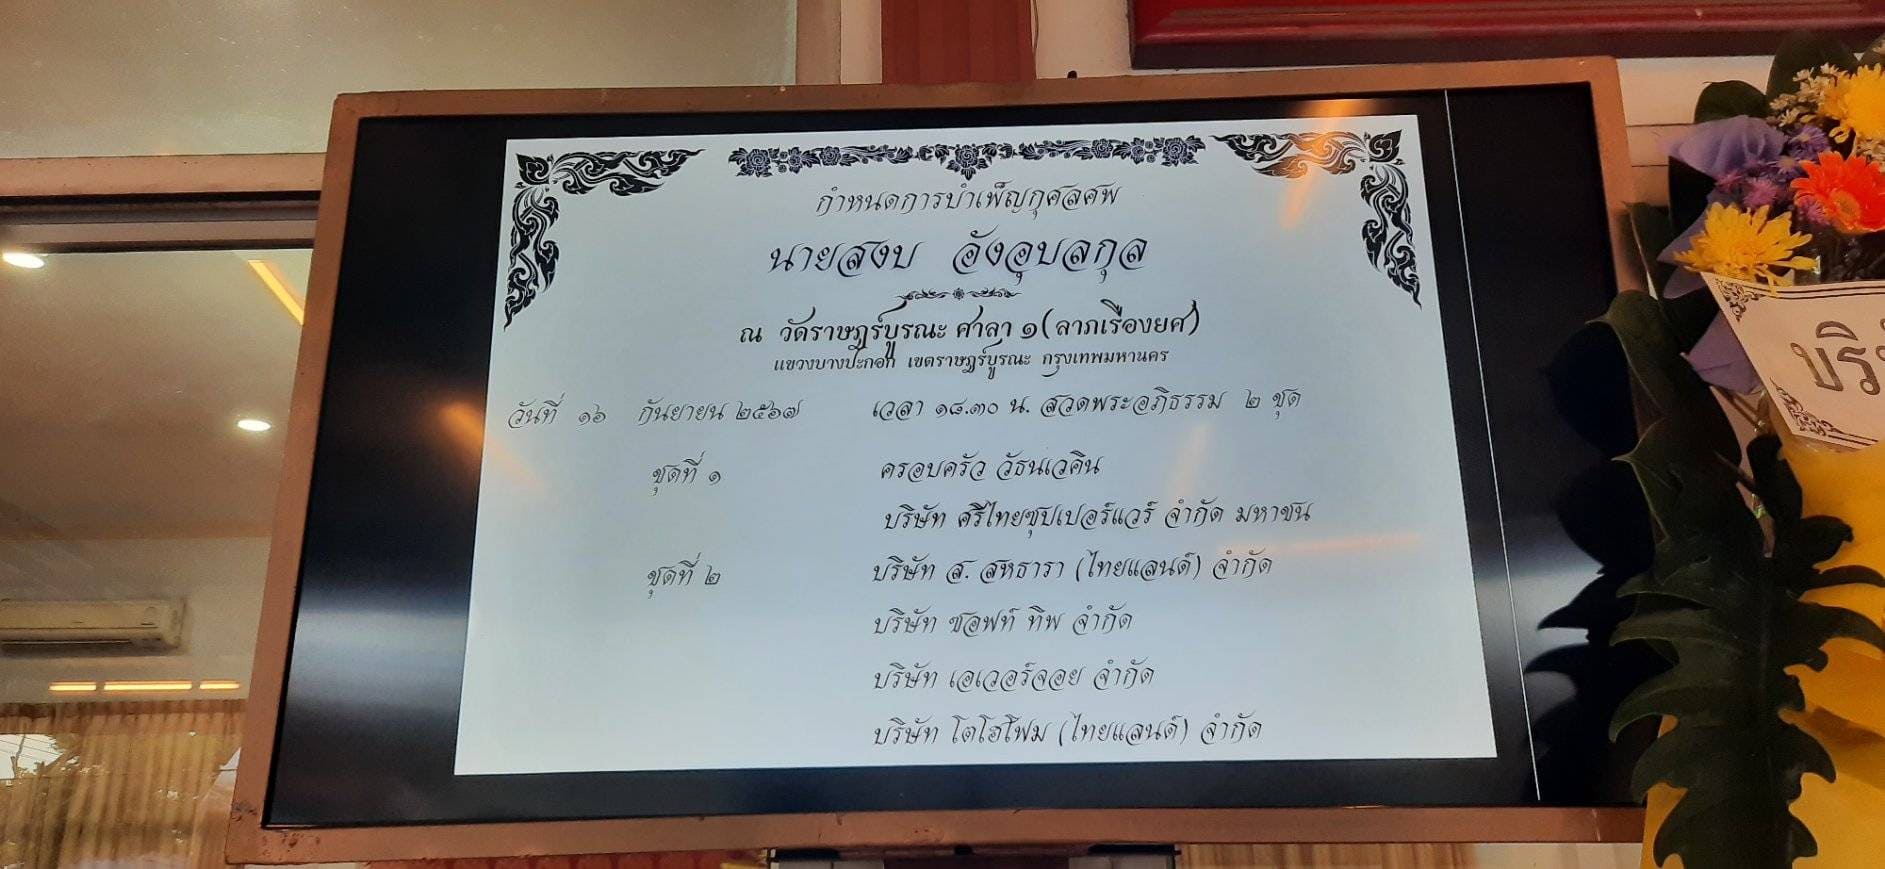 กำหนดการบำเพ็ญกุศลศพ
นายสงบ อังอุบลกุล
ณ วัดราษฎร์บูรณะ ศาลา ๑ (ลาภเรืองยศ)
แขวงบางปะกอก เขตราษฎร์บูรณะ กรุงเทพมหานคร
วันที่ ๑๖ กันยายน ๒๕๖๗ เวลา ๑๘.๓๐ น. สวดพระอภิธรรม ๒ ชุด
ชุดที่ ๑ ครอบครัว วัธนเวคิน
บริษัท ศรีไทยซุปเปอร์แวร์ จำกัด มหาชน
ชุดที่ ๒ บริษัท ส. สหธารา (ไทยแลนด์) จำกัด
บริษัท ซอฟท์ ทิพ จำกัด
บริษัท เอเวอร์จอย จำกัด
บริษัท โตโฮโฟม (ไทยแลนด์) จำกัด